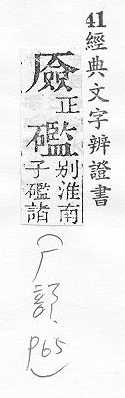 41經典文字辨證書
厱正礛別淮南
子礛諸
(厂部, p65)